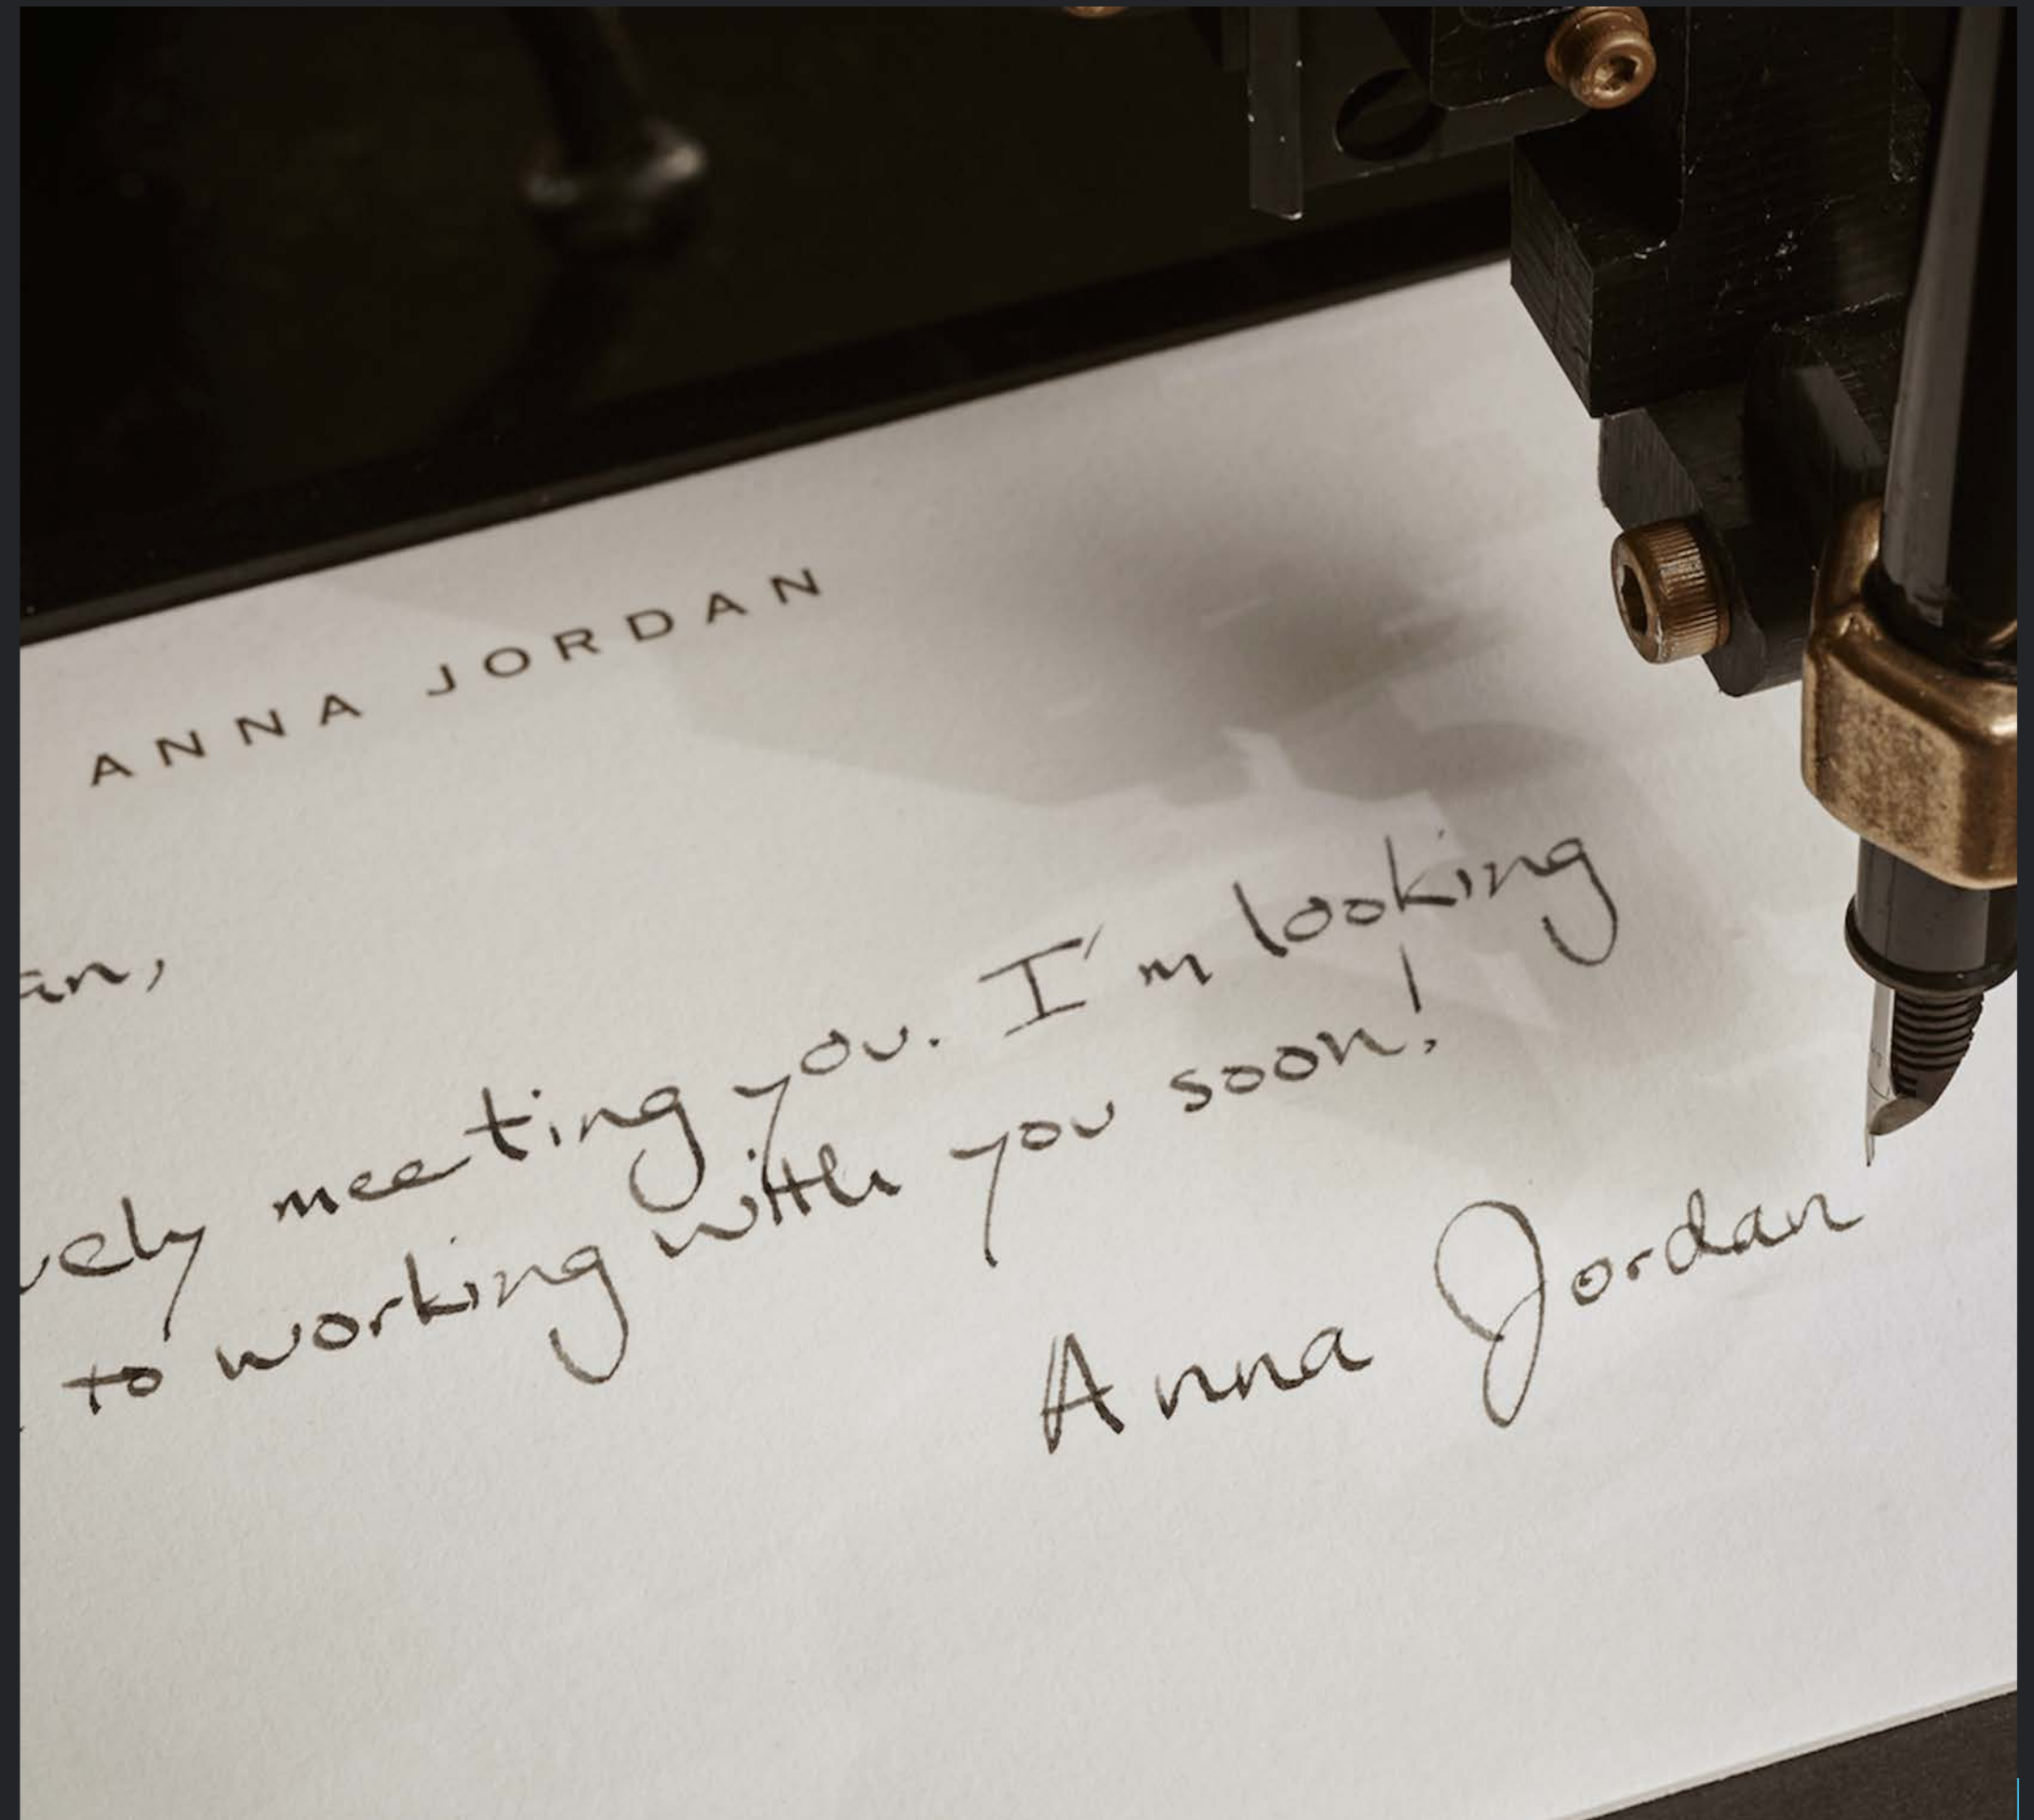 ANNA JORDAN
meeting you. I'm looking
to working with you soon!
Anna Jordan